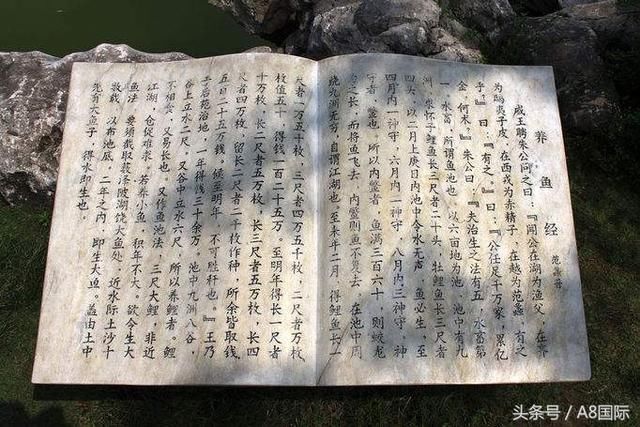 养鱼经
范蠡著
威王聘朱公问之曰：『闻公在湖为渔父，在齐
为鸱夷子皮，在西戎为赤精子，在越为范蠡，有之
乎』曰：『有之。』曰：『公任足千万家，累亿
金，何术？』朱公曰：『夫治生之法有五，水畜第
一，水畜，所谓鱼池也。以六亩地为池，池中有九
洲，求怀子鲤鱼长三尺者二十头，牡鲤鱼长三尺者
四头，以二月上庚日内池中令水无声，鱼必生，至
四月内一神守，六月内二神守，八月内三神守，神
守者，鳖也，所以内鳖者，鱼满三百六十，则蛟龙
为之长，而将鱼飞去，内鳖则鱼不复去，在池中周
绕九洲无穷，自谓江湖也。至来年二月，得鲤鱼长一
尺者一万五千枚，三尺者四万五千枚，二尺者万枚
枚值五十，得钱一百二十五万。至明年得长一尺者
十万枚，长二尺者五万枚，长三尺者五万枚，长四
尺者四万枚，留长二尺者二千枚作种，所余皆取钱，
五百二十五万钱。候至明年，不可胜计也。』王乃
于后苑治地，一年得钱三十余万。池中九洲八谷，
谷上立水二尺，又谷中立水六尺，所以养鲤者。鲤
不相食，又易长也。又作鱼池法，三尺大鲤，非近
江湖，仓促难求，若养小鱼，积年不大。欲令生大
鱼法，要须截取薮泽陂湖饶大鱼处，近水际土沙十
数载，以布池底，二年之内，即生大鱼。盖由土中
先有大鱼子，得水即生也。
头条号 / A8国际